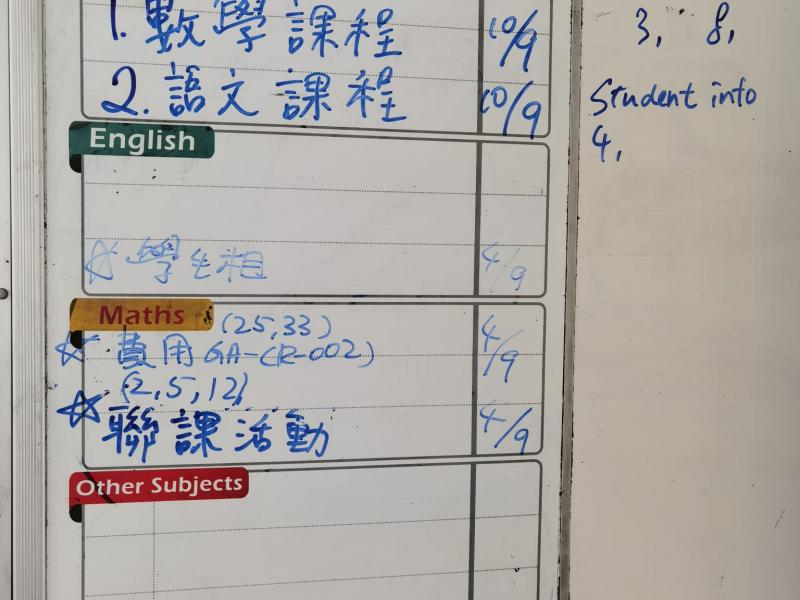 1. 數學課程 10/9
2. 語文課程 10/9
English
☆ 學生相 4/9
Maths (25,33)
☆ 費用 GA-CR-002) 4/9
(2,5,12)
☆ 聯課活動 4/9
Other Subjects
3, 8,
Student info
4,